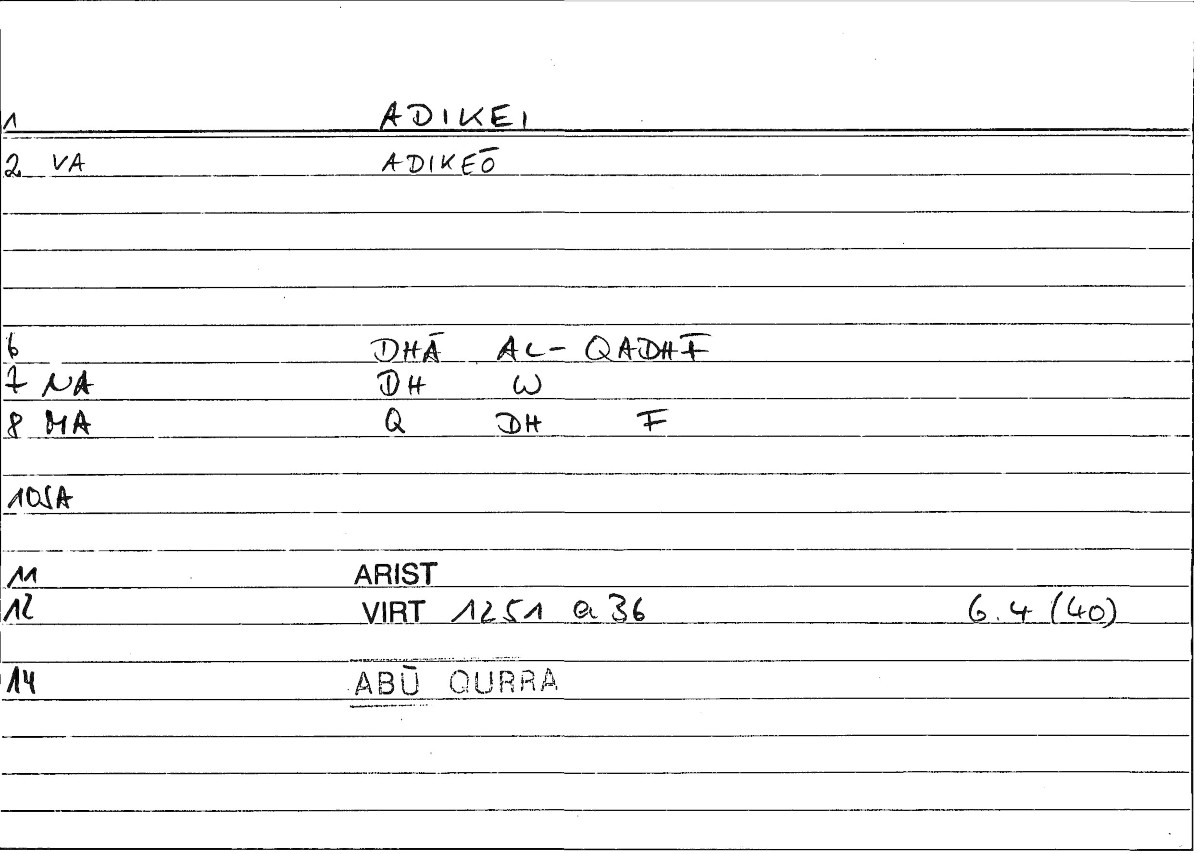 1 ADIKEI
2 VA ADIKEŌ
6 DHĀ AL-QADHF
7 NA DH W
8 MA Q DH F
10SA
11 ARIST
12 VIRT 1251 a 36 6.4 (40)
14 ABŪ QURRA